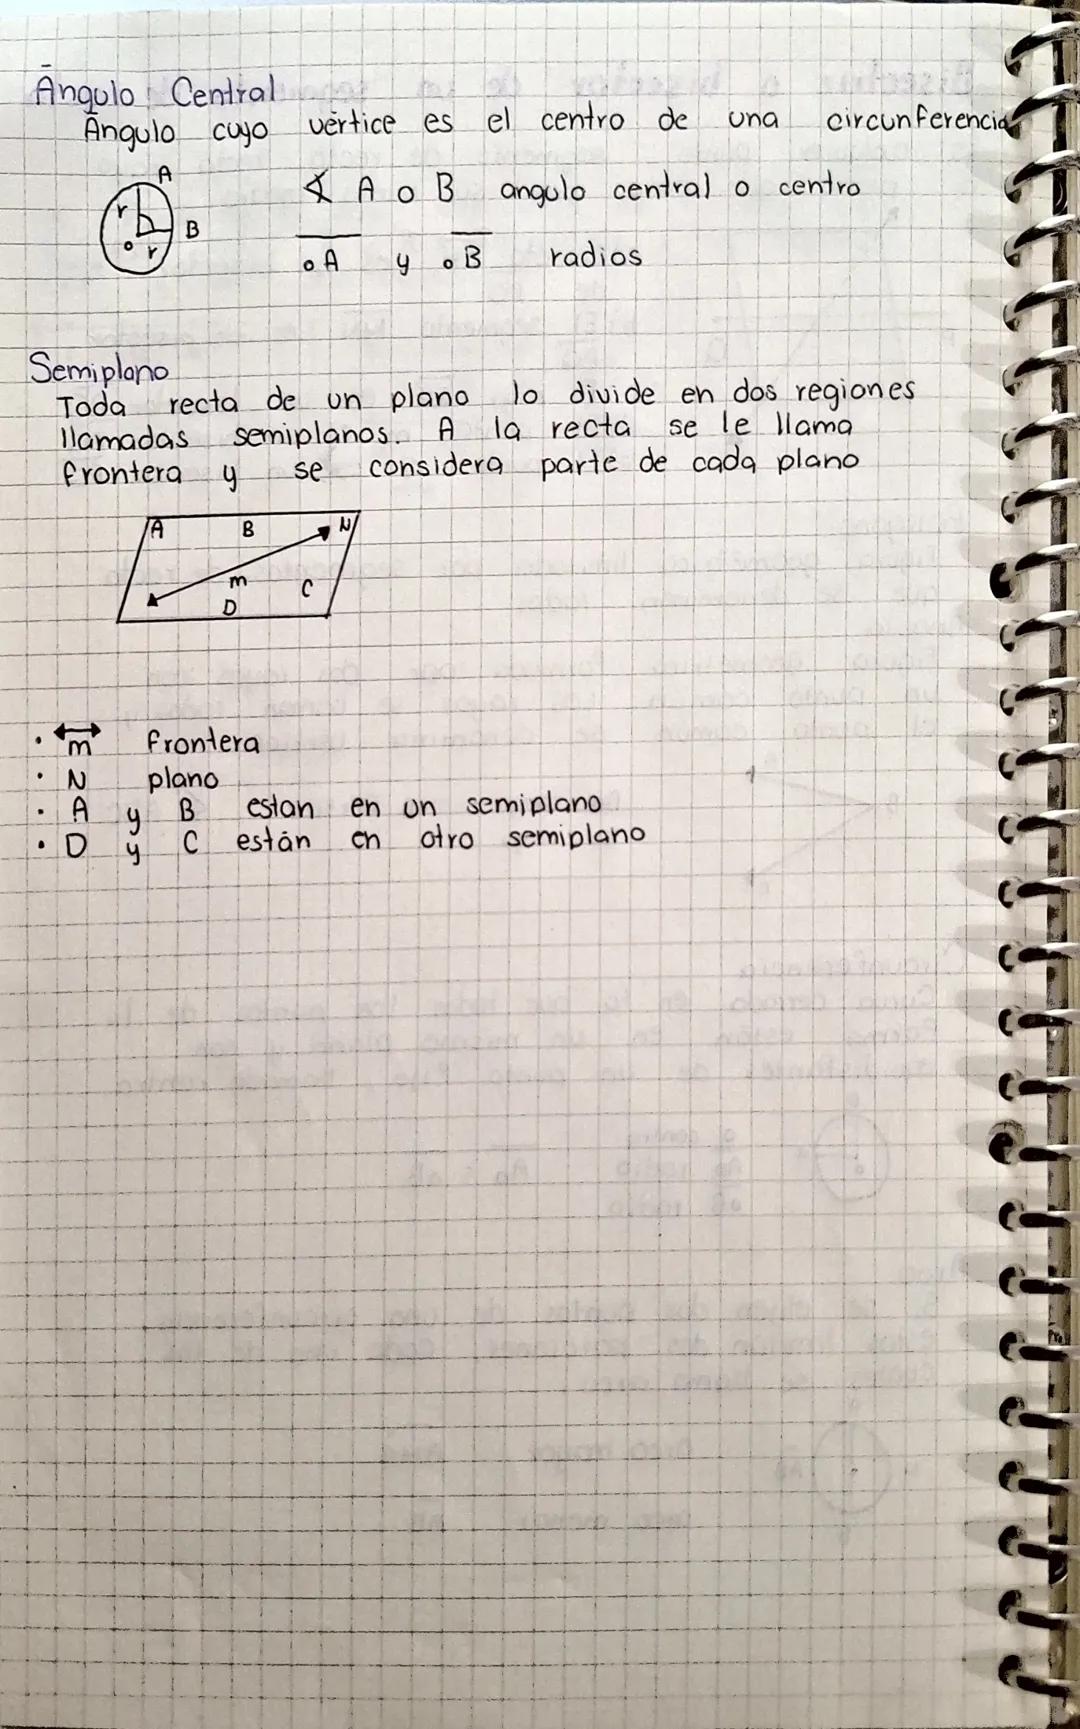 Ángulo Central
Ángulo cuyo vértice es el centro de una circunferencia
A
r
B
o
r
∢ A o B angulo central o centro
oA y oB radios
Semiplano
Toda recta de un plano lo divide en dos regiones
llamadas semiplanos. A la recta se le llama
frontera y se considera parte de cada plano
A B N
m C
D
• m frontera
• N plano
• A y B estan en un semiplano
• D y C están en otro semiplano